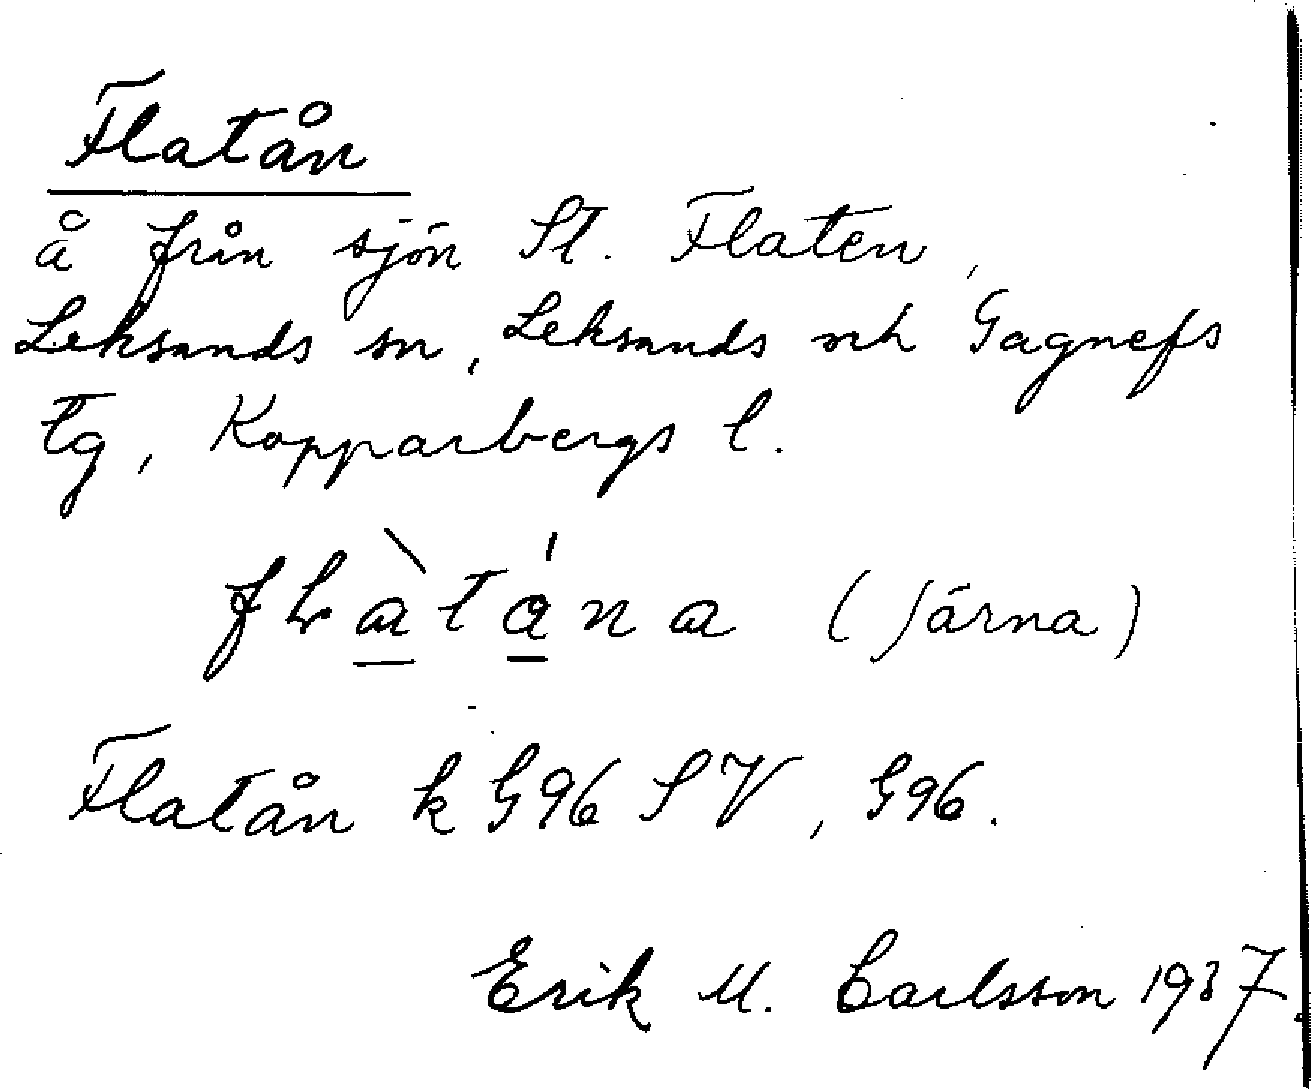 Flatån
å från sjön St. Flaten,
Leksands sn, Leksands och Gagnefs
tg, Kopparbergs l.
(Järna)
Flatån k G96 SV, G96.
Erik M. Carlsson 1937.